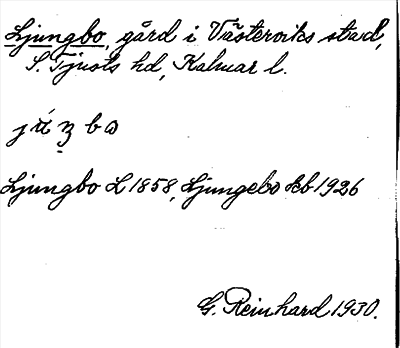 Ljungbo, gård i Västerviks stad,
S. Tjusts hd, Kalmar l.
Ljungbo L 1858, Ljungebo kb 1926
G. Reinhard 1930.